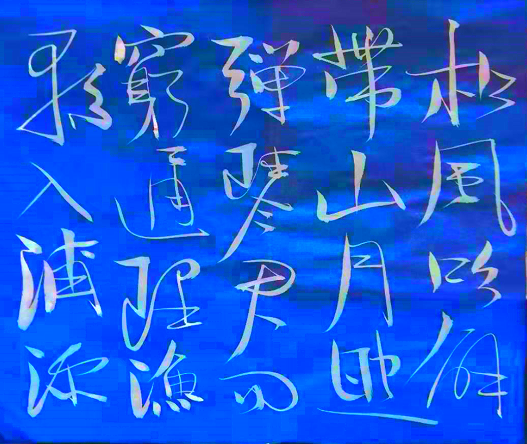 松風吹解
帶山月照
彈琴君問
窮通理漁
歌入浦深